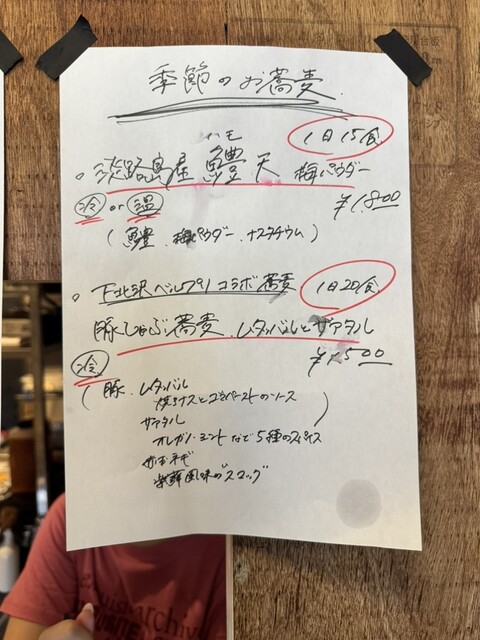 季節のお蕎麦
1日15食
ハモ
○ 淡路島産 鱧天 梅パウダー
冷 or 温
¥1,800
(鱧、梅パウダー、ナスタチウム)
○ 下北沢ベルプリ コラボ蕎麦
1日20食
豚しゃぶ蕎麦 ムタッバルとザアタル
¥1,500
冷
(豚、ムタッバル
焼きナスとゴマペーストのソース
ザアタル
オレガノ・ミントなど5種のスパイス
赤玉ネギ
紫蘇風味の"スマッグ")